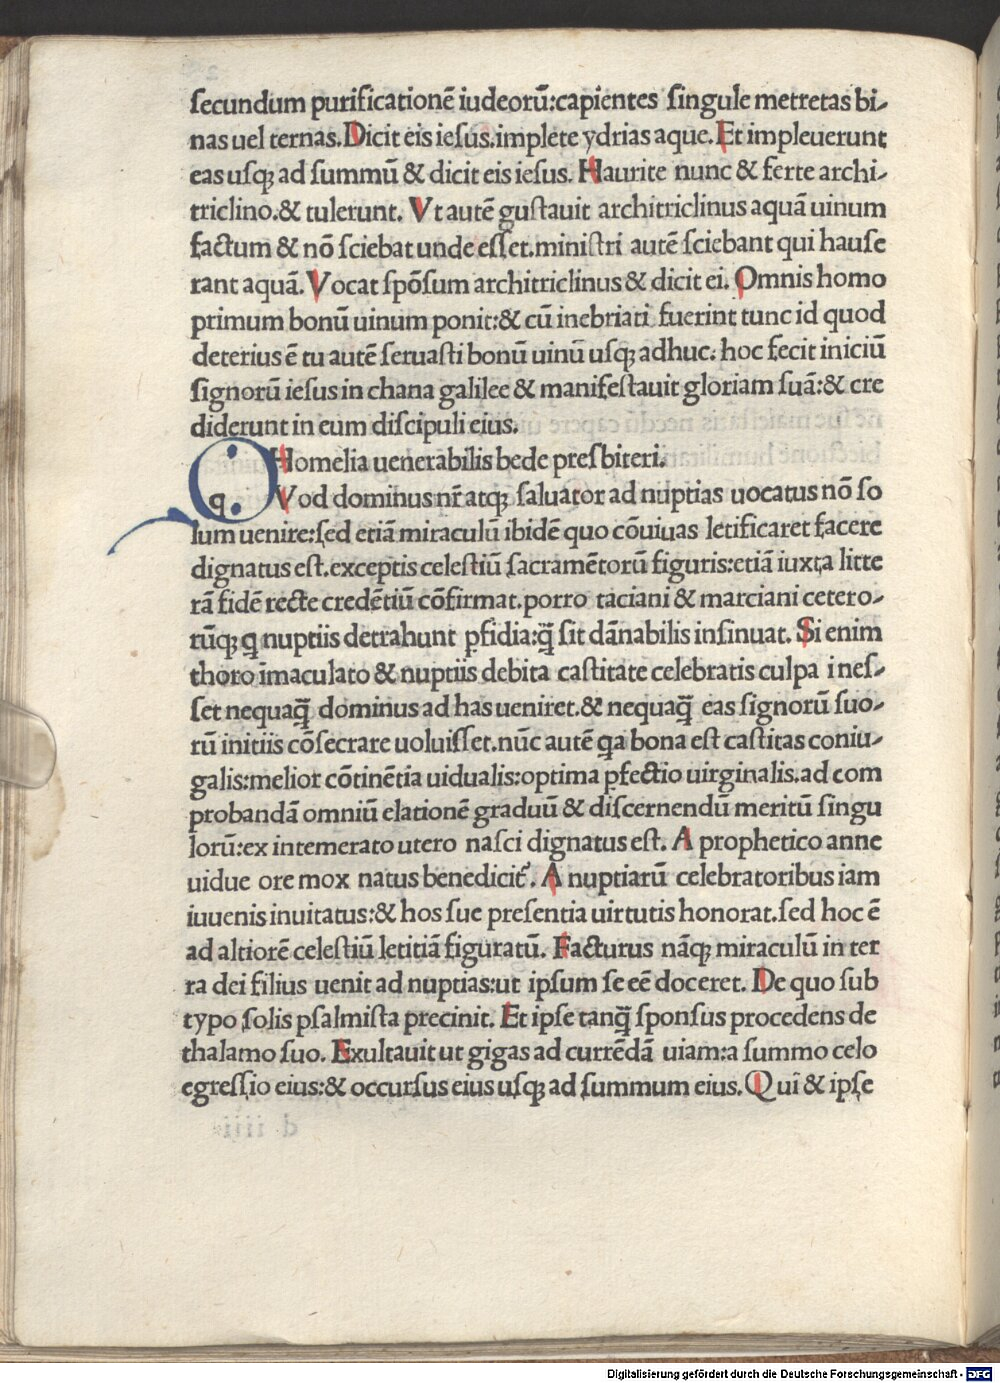 secundum purificationē iudeorū:capientes singule metretas bi-
nas uel ternas.Dicit eis iesus.implete ydrias aque.Et impleuerunt
eas usq; ad summū & dicit eis iesus. Haurite nunc & ferte archi-
triclino.& tulerunt. Vt autē gustauit architriclinus aquā uinum
factum & nō sciebat unde esset.ministri autē sciebant qui hause
rant aquā.Vocat spōsum architriclinus & dicit ei. Omnis homo
primum bonū uinum ponit:& cū inebriati fuerint tunc id quod
deterius ē tu autē seruasti bonū uinū usq; adhuc: hoc fecit iniciū
signorū iesus in chana galilee & manifestauit gloriam suā:& cre
diderunt in eum discipuli eius.
Homelia uenerabilis bede presbiteri.
q Vod dominus nr̄ atq; saluator ad nuptias uocatus nō so
lum uenire:sed etiā miraculū ibidē quo cōuiuas letificaret facere
dignatus est.exceptis celestiū sacramētorū figuris:etiā iuxta litte
rā fidē recte credētiū cōfirmat.porro taciani & marciani cetero-
rūq; q nuptiis detrahunt ꝑfidia:q̄ sit dānabilis insinuat. Si enim
thoro īmaculato & nuptiis debita castitate celebratis culpa ines-
set nequaq̄ dominus ad has ueniret.& nequaq̄ eas signorū suo-
rū initiis cōsecrare uoluisset.nūc autē qa bona est castitas coniu-
galis:melior cōtinētia uidualis:optima ꝑfectio uirginalis.ad com
probandā omniū elationē graduū & discernendū meritū singu
lorū:ex intemerato utero nasci dignatus est. A prophetico anne
uidue ore mox natus benedicit᷒. A nuptiarū celebratoribus iam
iuuenis inuitatus:& hos sue presentia uirtutis honorat.sed hoc ē
ad altiorē celestiū letitiā figuratū. Facturus nāq; miraculū in ter
ra dei filius uenit ad nuptias:ut ipsum se eē doceret. De quo sub
typo solis psalmista precinit. Et ipse tanq̄ sponsus procedens de
thalamo suo. Exultauit ut gigas ad currēdā uiam:a summo celo
egressio eius:& occursus eius usq; ad summum eius.Quī & ipse
Digitalisierung gefördert durch die Deutsche Forschungsgemeinschaft - DFG